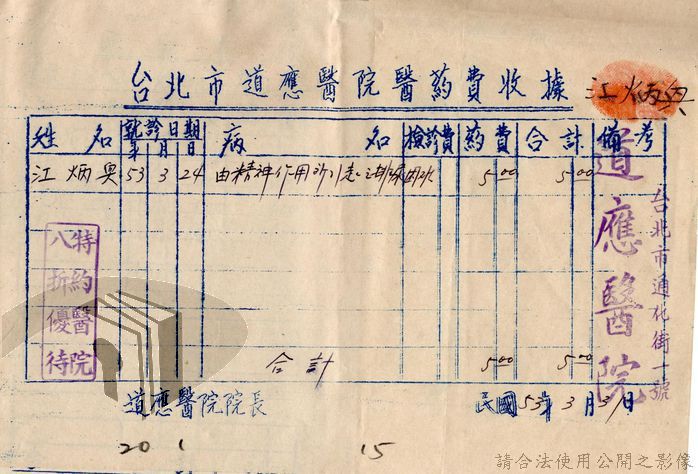 台北市道應醫院醫葯費收據
江炳興
姓名 就診日期 年 月 日 病名 檢診費 葯費 合計 備考
江炳興 53 3 24 由精神作用所引起 5.00 5.00
特約醫院
八折優待
道應醫院
台北市通化街一號
合計 5.00 5.00
道應醫院院長
民國53年3月31日
20 1 15
請合法使用公開之影像